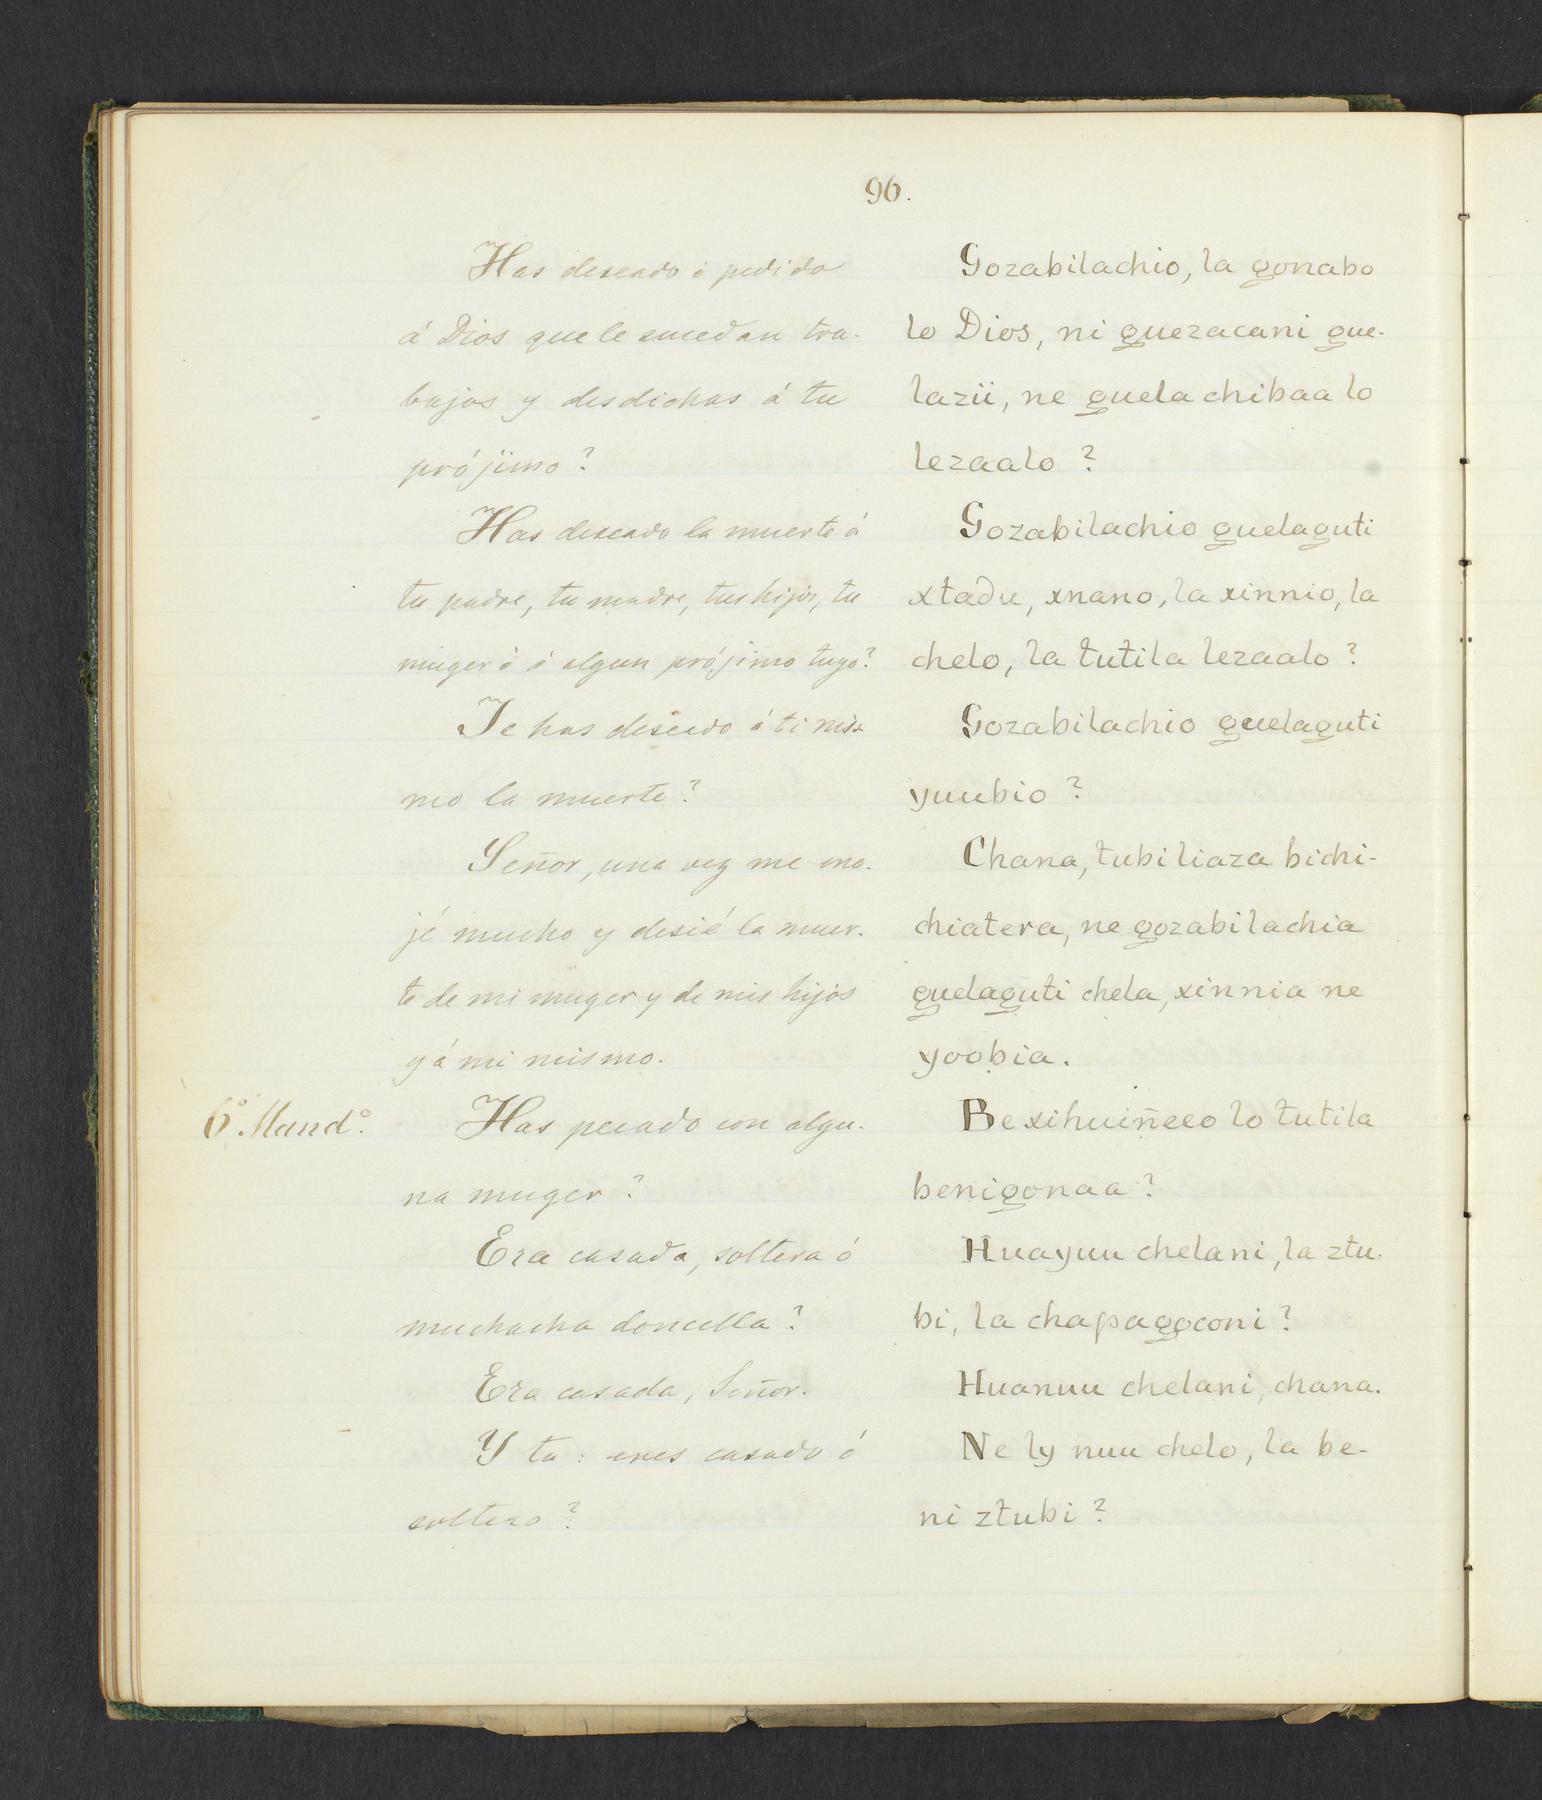 96.
Has deseado ó pedido
á Dios que le sucedan tra-
bajos y desdichas á tu
prójimo?
Has deseado la muerte á
tu padre, tu madre, tus hijos, tu
muger ó á algun prójimo tuyo?
Te has deseado á ti mis-
mo la muerte?
Señor, una vez me eno-
jé mucho y desié la muer-
te de mi muger y de mis hijos
y á mi mismo.
6º. Mandº.
Has pecado con algu-
na muger?
Era casada, soltera ó
muchacha doncella?
Era casada, Señor.
Y tu: eres casado ó
soltero?
Gozabilachio, la gonabo
lo Dios, ni guezacani gue-
lazii, ne guela chibaa lo
lezaalo?
Gozabilachio guelaguti
xtadu, xnano, la xinnio, la
chelo, la tutila lezaalo?
Gozabilachio guelaguti
yuubio?
Chana, tubi liaza bichi-
chiatera, ne gozabilachia
guelaguti chela, xinnia ne
yoobia.
Be xihuiñeeo lo tutila
benigonaa?
Huayuu chelani, la ztu-
bi, la chapagoconi?
Huanuu chelani, chana.
Ne ly nuu chelo, la be-
ni ztubi?